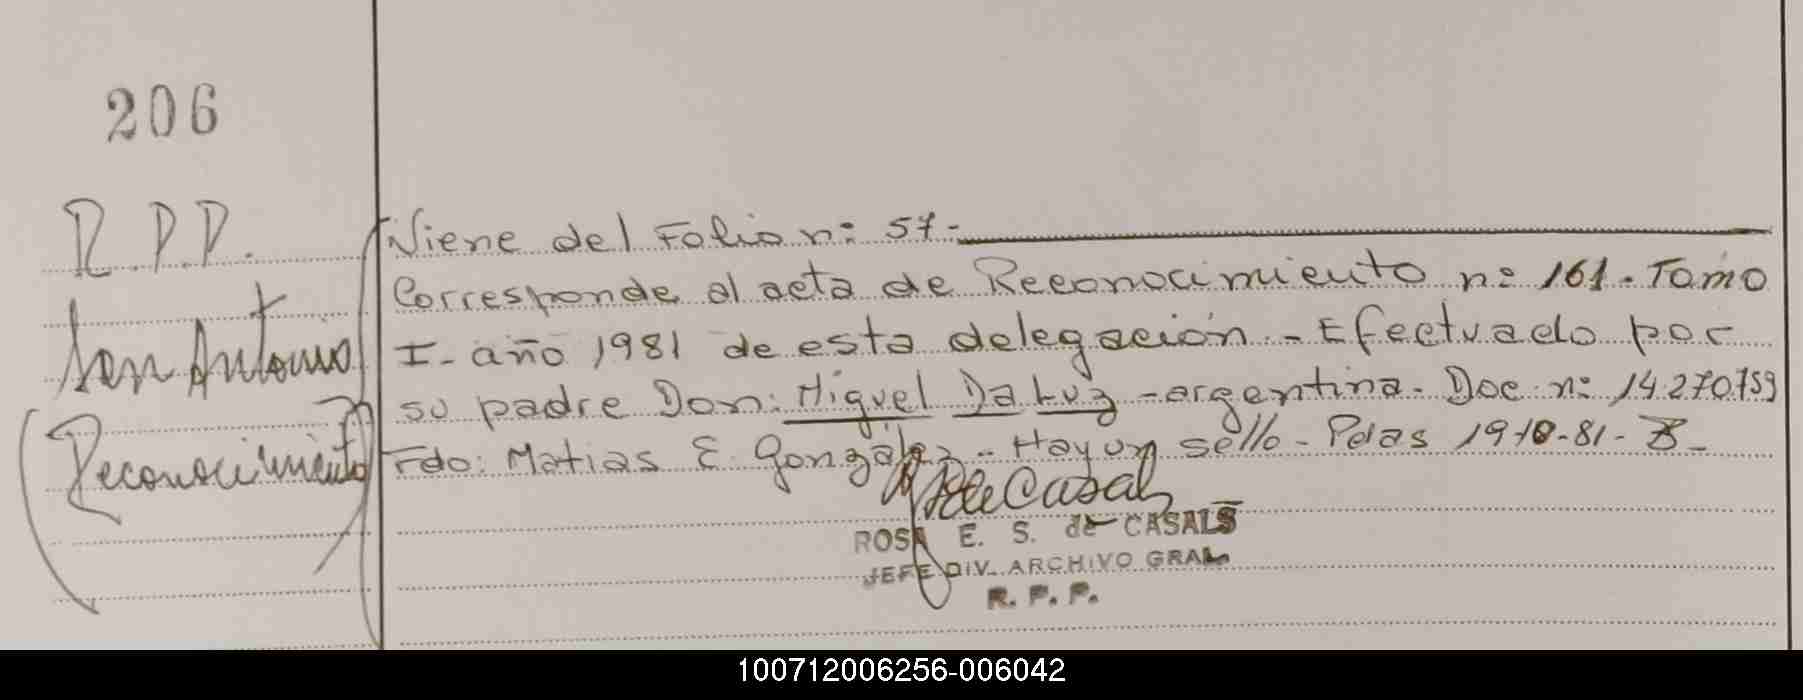 206
R.P.P.
San Antonio
(Reconocimiento)
Viene del Folio n: 57-
Corresponde al acta de Reconocimiento n: 161. Tomo
I- año 1981 de esta delegación. - Efectuado por
su padre Don: Miguel Da Luz - argentina. Doc. n: 14.270.759
Fdo: Matias E. Gonzalez - Hay un sello - Pdas 19-10-81-
ROSA E. S. de CASALS
JEFE DIV. ARCHIVO GRAL.
R. P. P.
100712006256-006042